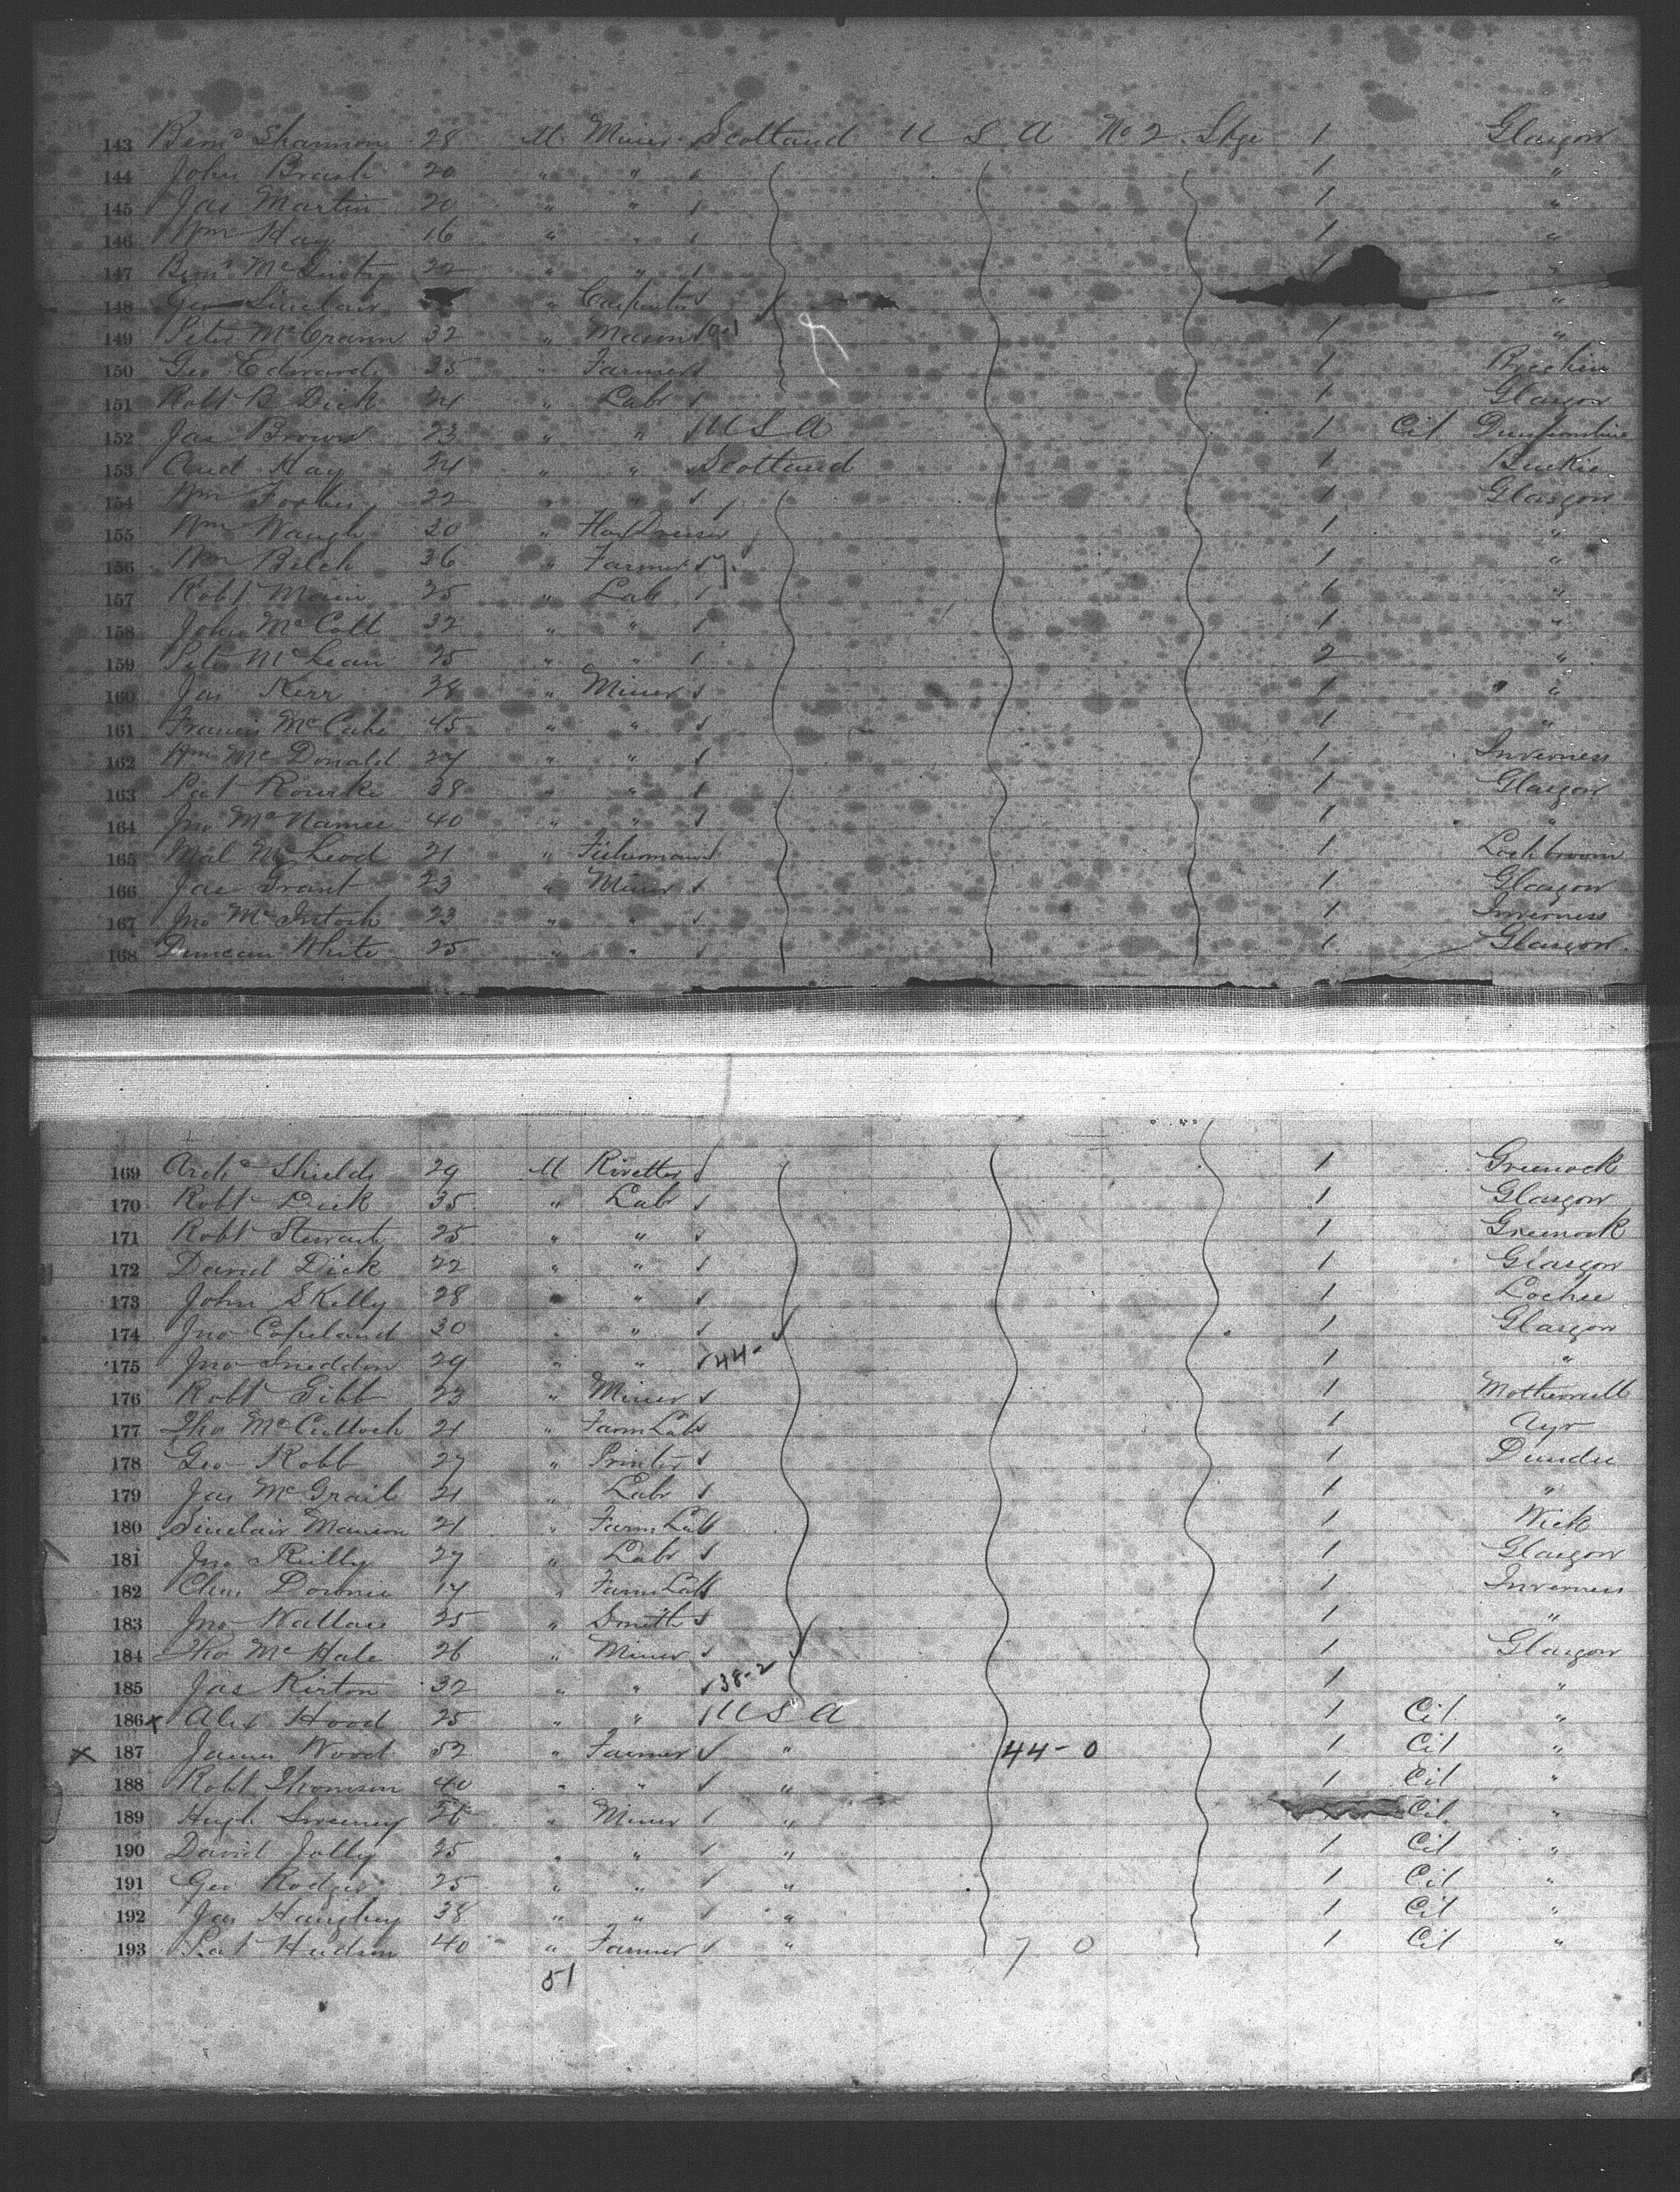 143 Bernd Shannon 28 M Miner Scotland U S A No 2 Stge 1 Glasgow
144 John Brash 20 " " 1 "
145 Jas Martin 20 " " 1 "
146 Wm Hay 16 " " 1 "
147 Bernd McGinty 22 " " 1 "
148 Geo Sinclair " Carpenter "
149 Peter McCrann 32 " Mason 1 "
150 Geo Edwards 35 " Farmer 1 Brechin
151 Robt B Dick 24 " Labr 1 Glasgow
152 Jas Brown 23 " " U S A 1 Cit Dunfermline
153 And Hay 24 " " Scotland 1 Buckie
154 Wm 22 " " 1 Glasgow
155 Wm Waugh 30 " 1 "
156 Wm Belch 36 " Farmer 1 "
157 Robt Main 25 " Lab 1 "
158 John McColl 32 " " 1 "
159 Peter McLean 25 " " 2 "
160 Jas Kerr 38 " Miner 1 "
161 Francis McCabe 45 " " 1 "
162 McDonald 24 " " 1 Inverness
163 Pat Rourke 38 " " 1 Glasgow
164 Jno McNamee 40 " " 1 "
165 Mal McLeod 21 " Fisherman 1 Lochbroom
166 Jas Grant 23 " Miner 1 Glasgow
167 Jno McIntosh 23 " " 1 Inverness
168 Duncan White 25 " " 1 Glasgow
169 Archd Shields 29 M Rivetter 1 Greenock
170 Robt Dick 35 " Labr 1 Glasgow
171 Robt Stewart 25 " " 1 Greenock
172 David Dick 22 " " 1 Glasgow
173 John Skelly 28 " " 1 Lochee
174 Jno Copeland 30 " " 1 Glasgow
175 Jno Sneddon 29 " " 44- 1 "
176 Robt Gibb 23 " Miner 1 Motherwell
177 Tho McCulloch 21 " Farm Lab 1 Ayr
178 Geo Robb 27 " Printer 1 Dundee
179 Jas McGrail 21 " Labr 1 "
180 Sinclair Manson 21 " Farm Lab 1 Wick
181 Jno Reilly 27 " Labr 1 Glasgow
182 Chas Downie 17 " Farm Lab 1 Inverness
183 Jno Wallace 25 " Smith 1 "
184 Tho McHale 26 " Miner 1 Glasgow
185 Jas Kirton 32 " " 38-2 1 "
186 x Alex Hood 25 " " U S A 1 Cit "
x 187 James Wood 52 " Farmer " 44-0 1 Cit "
188 Robt Thomson 40 " " " 1 Cit "
189 Hugh Sweeney 26 " Miner " Cit "
190 David Jolly 25 " " " 1 Cit "
191 Geo Rodger 25 " " " 1 Cit "
192 Jas Haughey 38 " " " 1 Cit "
193 Pat Hudson 40 " Farmer " 7 0 1 Cit "
51